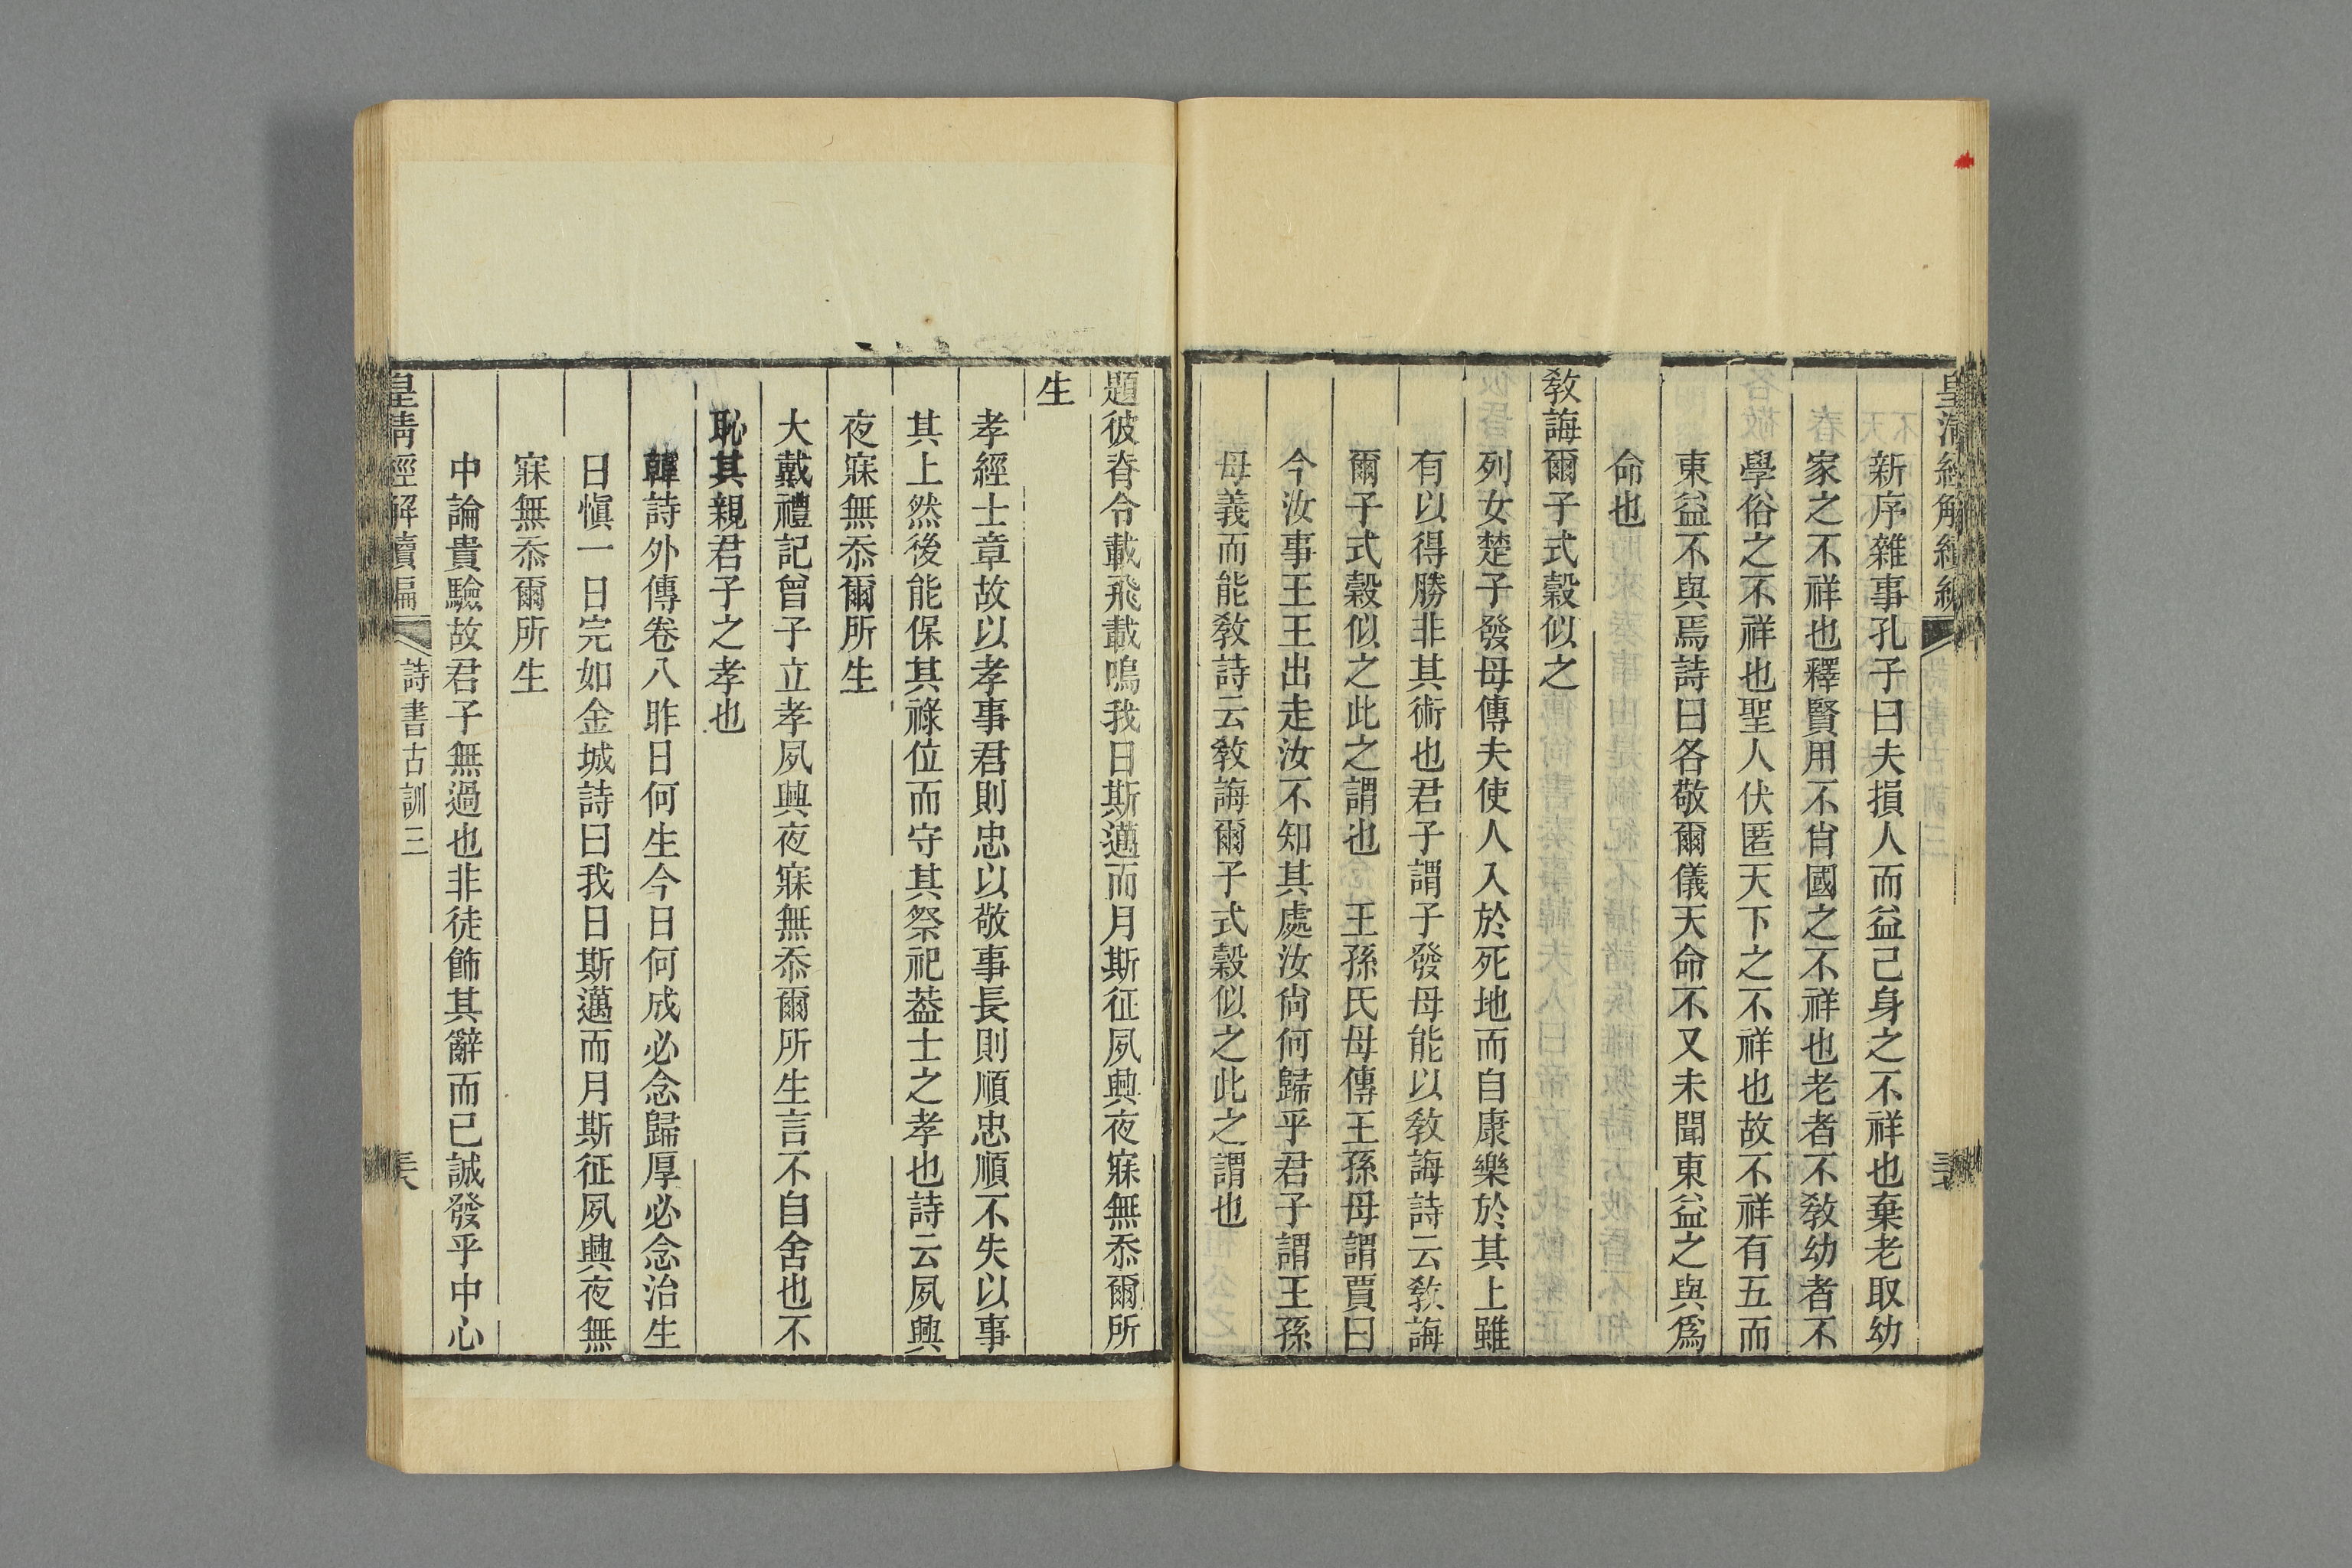 新序雜事孔子曰夫損人而益己身之不祥也棄老取幼
家之不祥也釋賢用不肖國之不祥也老者不敎幼者不
學俗之不祥也聖人伏匿天下之不祥也故不祥有五而
東益不與焉詩曰各敬爾儀天命不又未聞東益之與爲
命也
敎誨爾子式穀似之
列女楚子發母傳夫使人入於死地而自康樂於其上雖
有以得勝非其術也君子謂子發母能以敎誨詩云敎誨
爾子式穀似之此之謂也　王孫氏母傳王孫母謂賈曰
今汝事王王出走汝不知其處汝尙何歸乎君子謂王孫
母義而能敎詩云敎誨爾子式穀似之此之謂也
題彼脊令載飛載鳴我日斯邁而月斯征夙興夜寐無忝爾所
生
孝經士章故以孝事君則忠以敬事長則順忠順不失以事
其上然後能保其祿位而守其祭祀葢士之孝也詩云夙興
夜寐無忝爾所生
大戴禮記曾子立孝夙興夜寐無忝爾所生言不自舍也不
恥其親君子之孝也
韓詩外傳卷八昨日何生今日何成必念歸厚必念治生
日愼一日完如金城詩曰我日斯邁而月斯征夙興夜無
寐無忝爾所生
中論貴驗故君子無過也非徒飾其辭而已誠發乎中心
皇淸經解續編　詩書古訓三